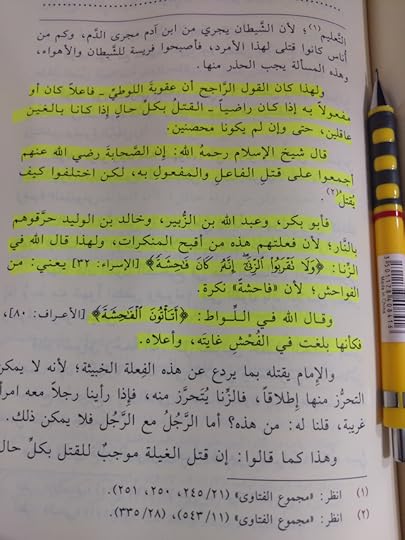 التَّعليم(١)؛ لأن الشَّيطان يجري من ابن آدم مجرى الدَّم، وكم من
أناس كانوا قتلى لهذا الأمرد، فأصبحوا فريسة للشَّيطان والأهواء،
وهذه المسألة يجب الحذر منها.
ولهذا كان القول الرَّاجح أن عقوبة اللوطيِّ ـ فاعلاً كان أو
مفعولاً به إذا كان راضياً ـ القتلُ بكلِّ حالٍ إذا كانا بالغين
عاقلين، حتى وإن لم يكونا محصنين.
قال شيخ الإسلام رحمهُ الله: إن الصَّحابة رضي الله عنهم
أجمعوا على قتلِ الفاعلِ والمفعولِ به، لكن اختلفوا كيف
يُقتلُ(٢).
فأبو بكر، وعبد الله بن الزُّبير، وخالد بن الوليد حرَّقوهم
بالنَّار؛ لأن فعلتهم هذه من أقبح المنكرات، ولهذا قال الله في
الزِّنا: ﴿وَلَا تَقْرَبُوا۟ ٱلزِّنَىٰٓ إِنَّهُۥ كَانَ فَـٰحِشَةً﴾ [الإسراء: ٣٢] يعني: من
الفواحش؛ لأن «فاحشة» نكرة.
وقال الله في اللِّواط: ﴿أَتَأْتُونَ ٱلْفَـٰحِشَةَ﴾ [الأعراف: ٨٠]،
فكأنها بلغت في الفُحْشِ غايتَه، وأعلاه.
والإمام يقتله بما يردع عن هذه الفِعلة الخبيثة؛ لأنه لا يمكن
التحرُّز منها إطلاقاً، فالزِّنا يُتَحرَّز منه، فإذا رأينا رجلاً معه امرأ
غريبة، قلنا له: من هذه؟ أما الرَّجُل مع الرَّجُل فلا يمكن ذلك.
وهذا كما قالوا: إن قتل الغيلة موجبٌ للقتل بكلِّ حال
(١) انظر: «مجموع الفتاوى» (٢٤٥/٢١، ٢٥٠، ٢٥١).
(٢) انظر: «مجموع الفتاوى» (٥٤٣/١١)، (٣٣٥/٢٨).